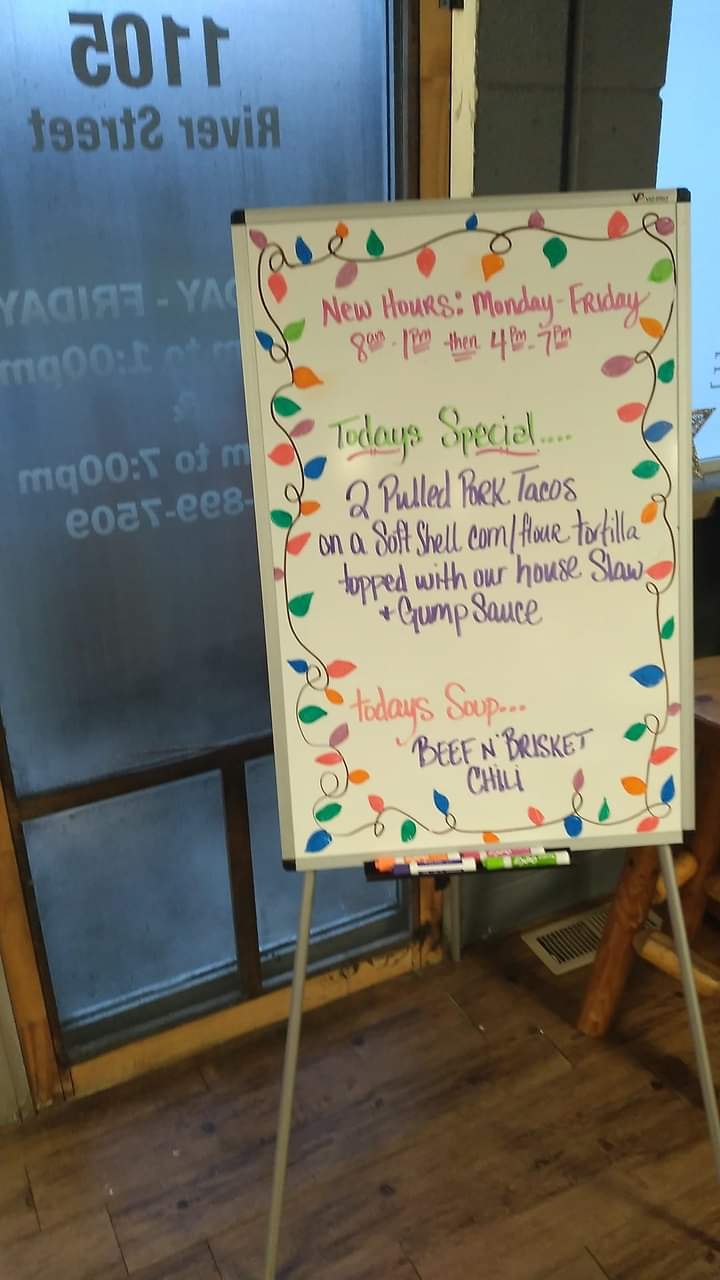 1105
River Street
DAY - FRIDAY
m to 1:00pm
&
m to 7:00pm
-899-7509
New Hours: Monday-Friday
8am - 1pm then 4pm - 7pm
Todays Special....
2 Pulled Pork Tacos
on a Soft Shell corn/flour tortilla
topped with our house Slaw
+ Gump Sauce
todays Soup...
BEEF N' BRISKET
CHiLi